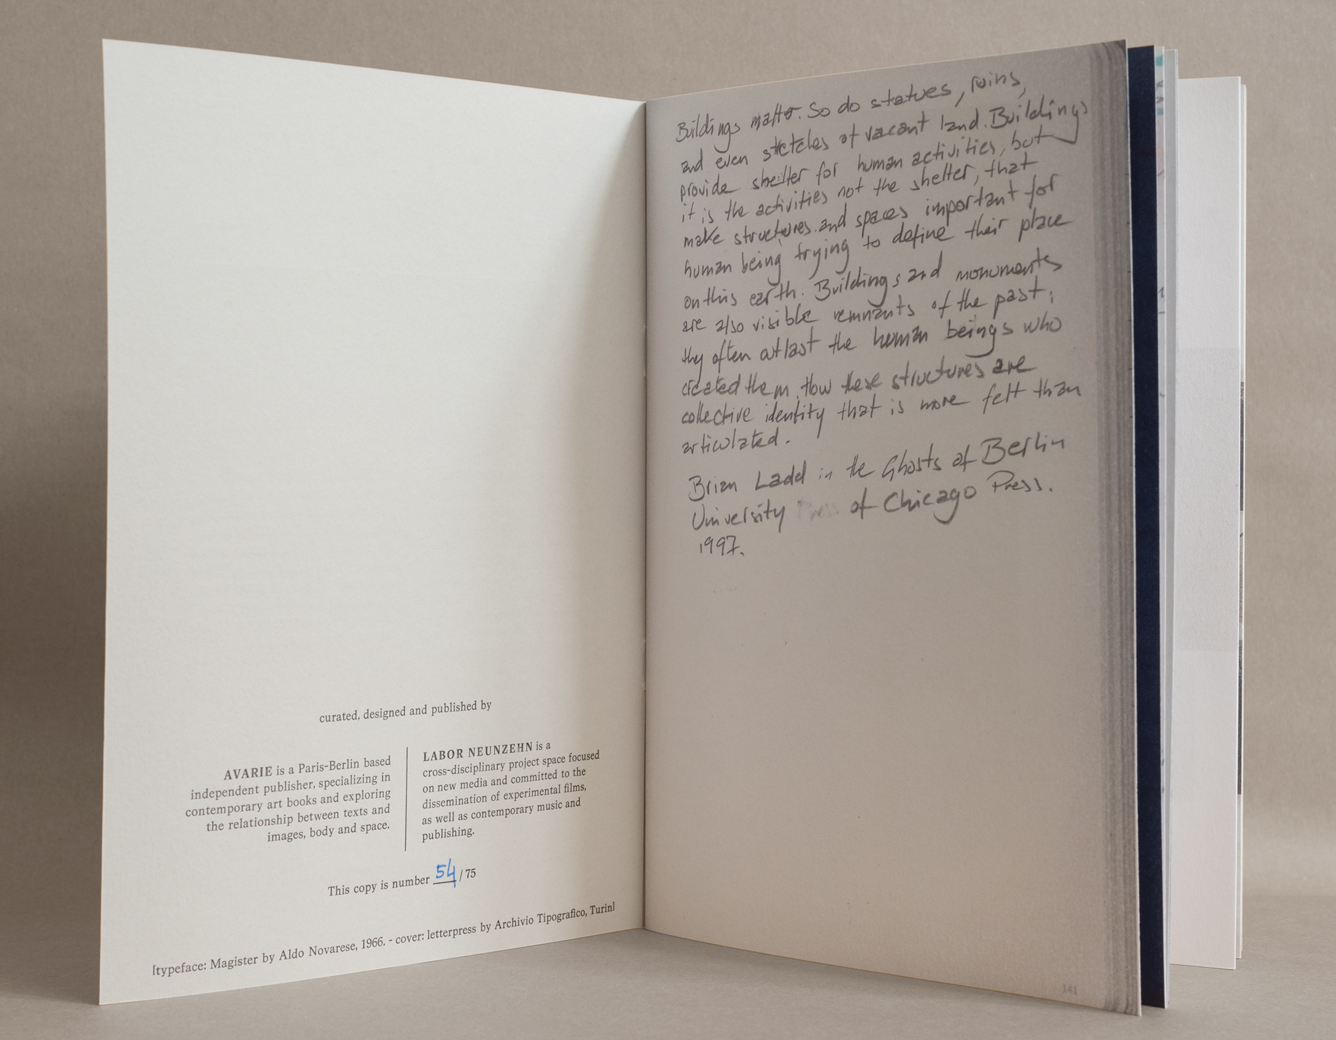 curated, designed and published by
AVARIE is a Paris-Berlin based
independent publisher, specializing in
contemporary art books and exploring
the relationship between texts and
images, body and space.
LABOR NEUNZEHN is a
cross-disciplinary project space focused
on new media and committed to the
dissemination of experimental films,
as well as contemporary music and
publishing.
This copy is number 54 / 75
[typeface: Magister by Aldo Novarese, 1966. - cover: letterpress by Archivio Tipografico, Turin]
Buildings matter. So do statues, ruins,
and even stretches of vacant land. Buildings
provide shelter for human activities, but
it is the activities not the shelter, that
make structures and spaces important for
human being trying to define their place
on this earth. Buildings and monuments
are also visible remnants of the past;
they often outlast the human beings who
created them. How these structures are
collective identity that is more felt than
articulated.
Brian Ladd in the Ghosts of Berlin
University Press of Chicago Press.
1997.
141